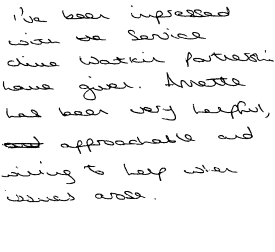 I've been impressed
with the service
clive Watkin partnership
have given. Annette
has been very helpful,
approachable and
willing to help when
issues arose.